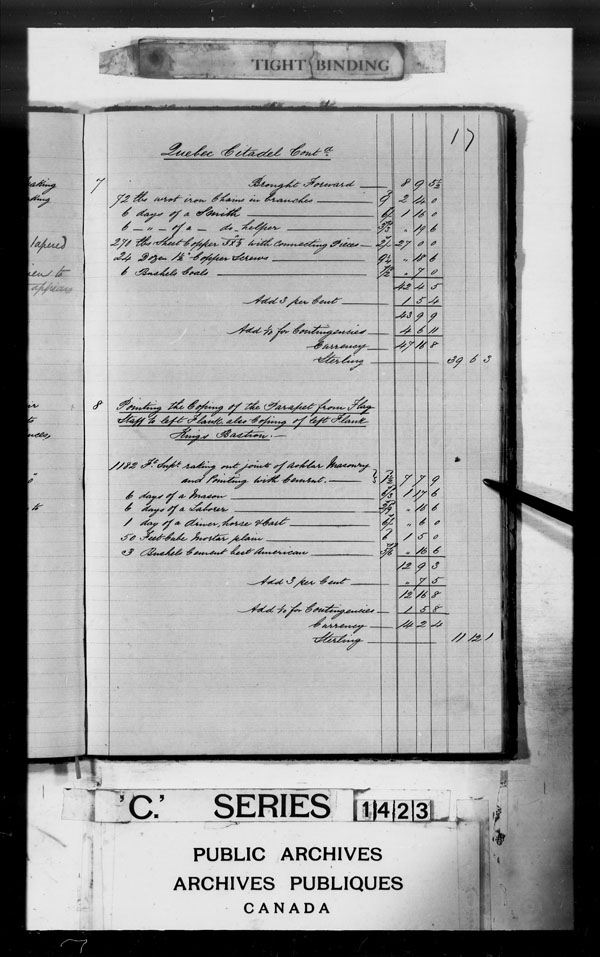 TIGHT BINDING
17
Quebec Citadel Contd.
7 Brought Forward 8 9 5½
72 lbs wrot iron Chains in branches 9/ 2 14 0
6 days of a Smith 6/- 1 16 0
6 — „ — of a — do— helper 3/3 „ 19 6
271 lbs Sheet Copper with connecting Pieces 2/- 27 0 0
24 Dozen 1½ Copper Screws 9¼ „ 18 6
6 Bushels Coals 1/2 „ 7 0
42 4 5
Add 3 per Cent 1 5 4
43 9 9
Add 1/10 for Contingencies 4 6 11
Currency 47 16 8
Sterling 39 6 3
8 Pointing the Coping of the Parapet from Flag
Staff to left Flank also Coping of left Flank
Kings Bastion.—
1182 Ft. Supl. raking out joints of Ashlar Masonry
and Pointing with Cement. 1½ 7 7 9
6 days of a Mason 6/3 1 17 6
6 days of a Laborer 2/9 „ 16 6
1 day of a driver, horse & Cart 6/- „ 6 0
50 Feet Cube Mortar plain 6 1 5 0
3 Bushels Cement best American 5/6 „ 16 6
12 9 3
Add 3 per Cent „ 7 5
12 16 8
Add 1/10 for Contingencies 1 5 8
Currency 14 2 4
Sterling 11 12 1
aking
king
tapered
ien to
appears
nces,
to
'C.' SERIES 1423
PUBLIC ARCHIVES
ARCHIVES PUBLIQUES
CANADA